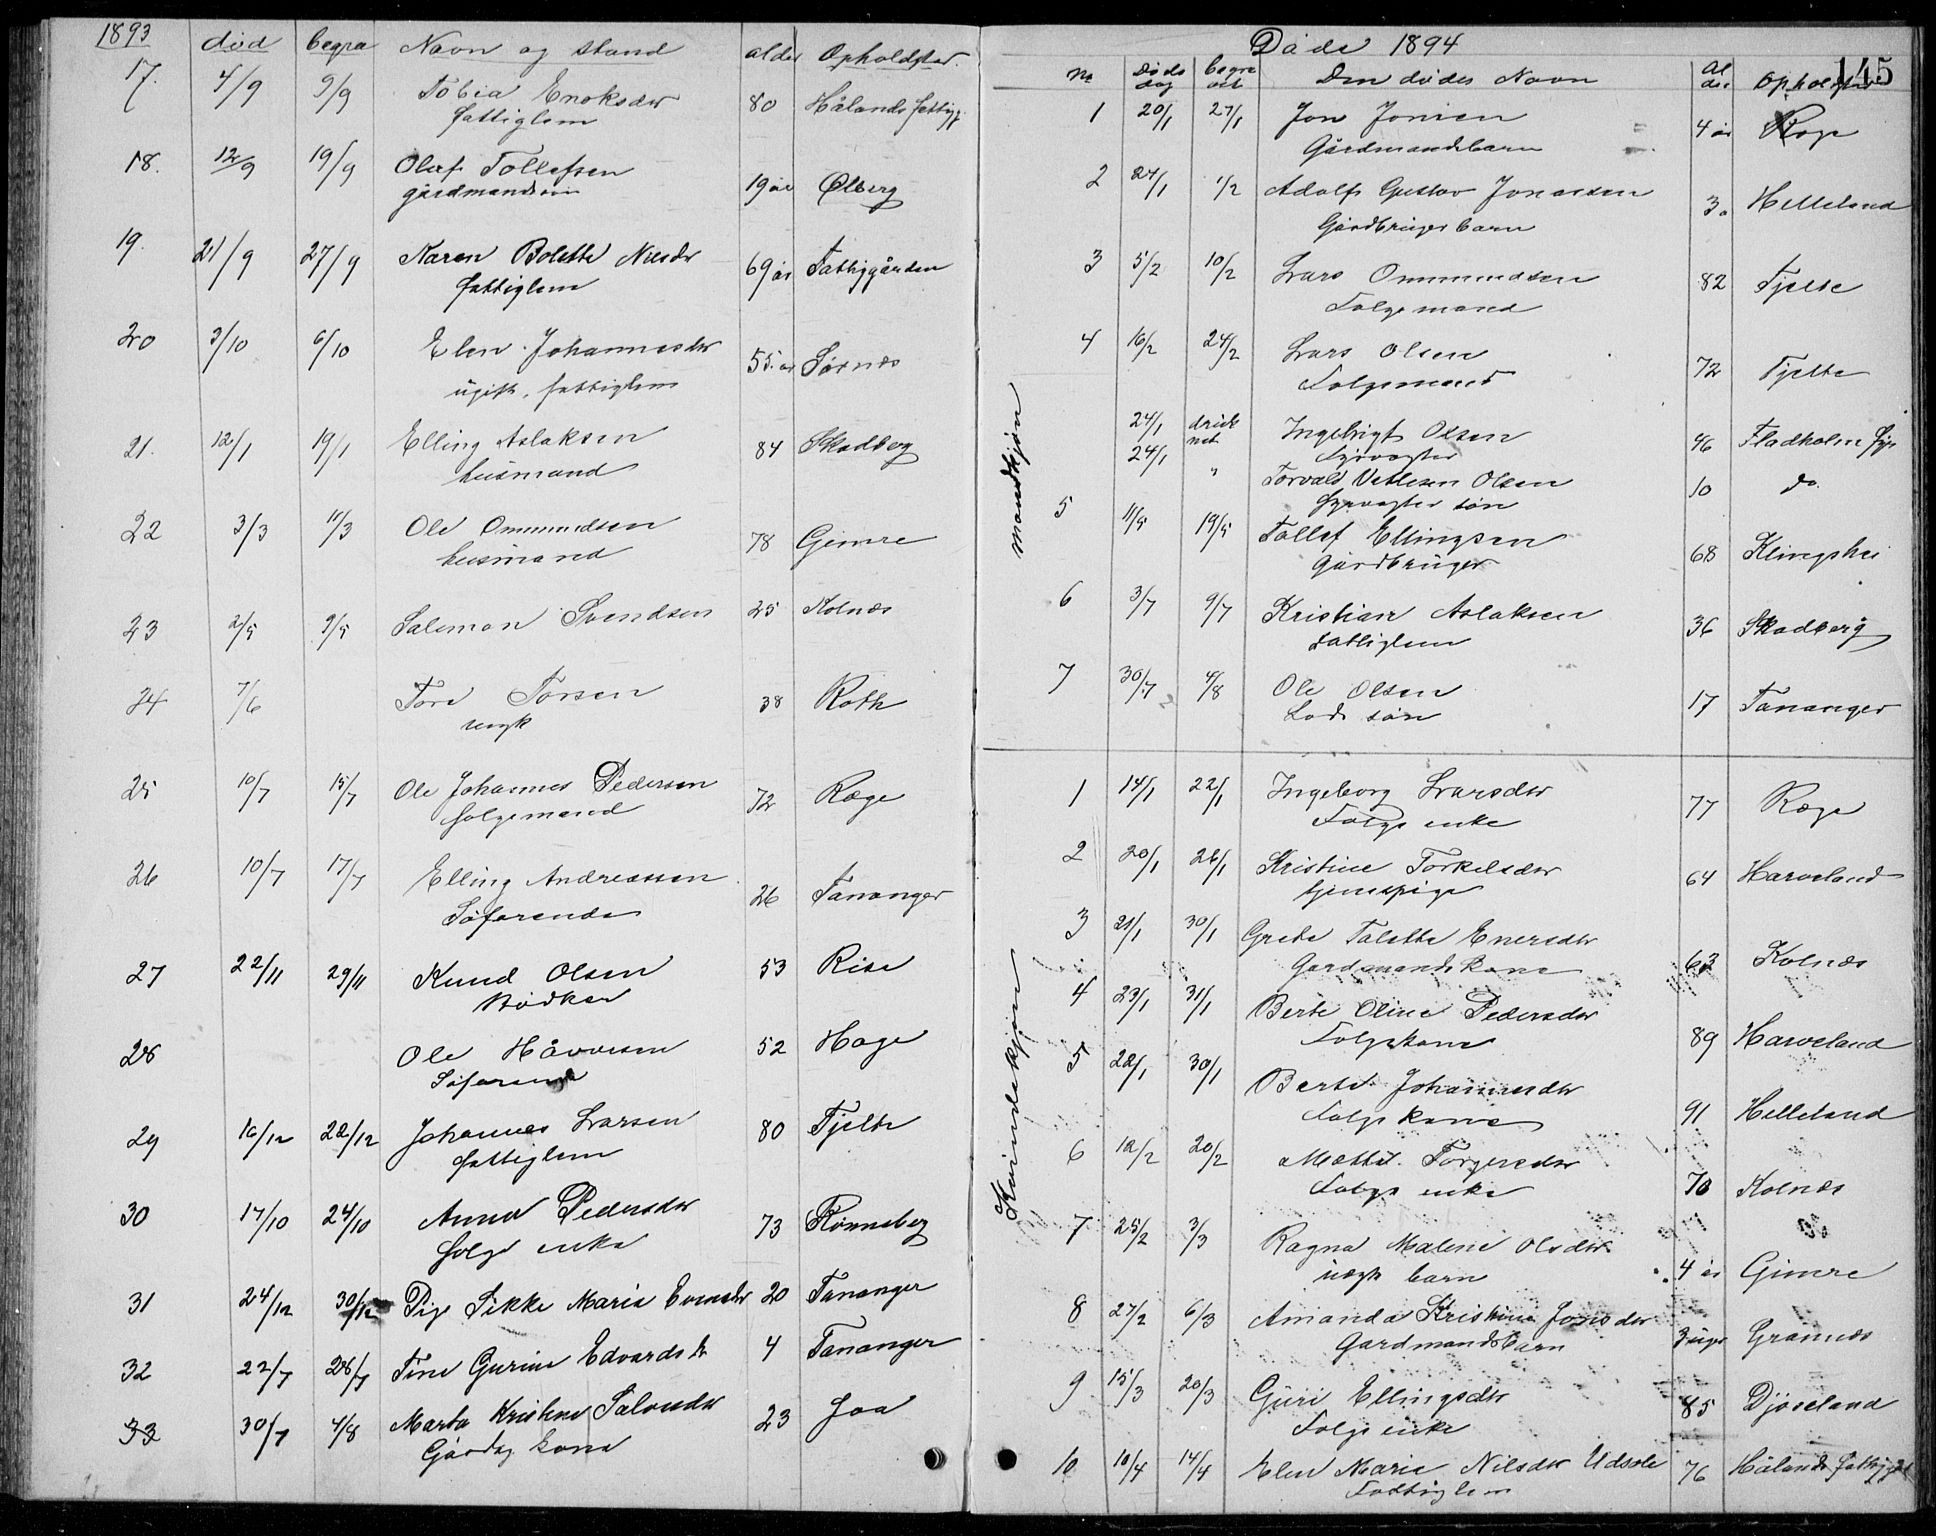 1893 død begra Navn og stand alder Opholdster.
17. 4/9 9/9 Tobia Enoksdtr 80 Hålands fattigg
fattiglem
18. 12/9 19/9 Olaf Tollefsen 19 år Ølberg
gårdmandssøn
19. 21/9 27/9 Karen Bolette Nilsdtr 69 år Fattiggården
fattiglem
20 3/10 6/10 Elen Johannesdtr 55 år Sørnæs
ugift, fattiglem
21. 12/1 19/1 Elling Aslaksen 84 Skadberg
husmand
22 3/3 11/3 Ole Ommundsen 78 Gimre
husmand
23 2/5 9/5 Salomon Svendsen 25 Kolnæs
24 7/6 Tore Torsen 38 Roth
ungk
25 10/7 15/7 Ole Johannes Pedersen 72 Ræge
folgemand
26 10/7 17/7 Elling Andreassen 26 Tananger
Søfarende
27 22/11 29/11 Knud Olsen 53 Risa
Bødker
28 Ole Håvorsen 52 Haga
Søfarende
29 16/12 22/12 Johannes Larsen 80 Tjelte
fattiglem
30 17/10 24/10 Anna Pedersdtr 73 Rønneberg
folge enke
31 24/12 30/12 Pige Sikke Maria Evensdtr 20 Tananger
32 22/7 28/7 Tine Gurine Edvardsdtr 4 Tananger
33 30/7 4/8 Marta Kristine Salvesdtr 23 Joa
Gårdbg kone
Døde 1894
145
No Døds dag begra vet Den dødes Navn Al der Opholdsted
mandkjøn
1 20/1 27/1 Jon Jonsen 4 år Røge
Gårdmandsbarn
2 24/1 1/2 Adolf Gustav Jonassen 3. Helleland
Gårdbruger barn
3 5/2 10/2 Lars Ommundsen 82 Tjelte
Folgemand
4 16/2 24/2 Lars Olsen 72 Tjelte
Folgemand
24/1 druknet Ingebrigt Olsen 46 Fladholm fyr
Fyrvogter
24/1 " Torvald Vetlesen Olsen 10 do
fyrvogter søn
5 11/5 19/5 Tollef Ellingsen 68 Klingshei
Gårdbruger
6 3/7 9/7 Kristian Aslaksen 36 Skadberg
Fattiglem
7 30/7 4/8 Ole Olsen 17 Tananger
Lods søn
Kvindekjøn
1 14/1 22/1 Ingeborg Larsdtr 77 Ræge
Folge enke
2 20/1 26/1 Kristine Torkelsdtr 64 Harveland
tjenepige
3 21/1 30/1 Grete Talette Enersdtr 63 Kolnæs
Gardmandskone
4 23/1 31/1 Berte Oline Pedersdtr 89 Harveland
Folgekone
5 22/1 30/1 Berte Johannesdtr 91 Helleland
Folgekone
6 12/2 20/2 Mætte Torgersdtr 70 Kolnæs
Folge enke
7 25/2 3/3 Ragna Malene Olsdtr 4 år Gimre
uægte barn
8 27/2 6/3 Amanda Kristine Jonsdtr 3 uger Grannes
Gardmandsbarn
9 15/3 20/3 Guri Ellingsdtr 85 Djøseland
Folge enke
10 10/4 14/4 Elen Marie Nilsdtr Udsola 76 Hålands fattiggård
Fattiglem